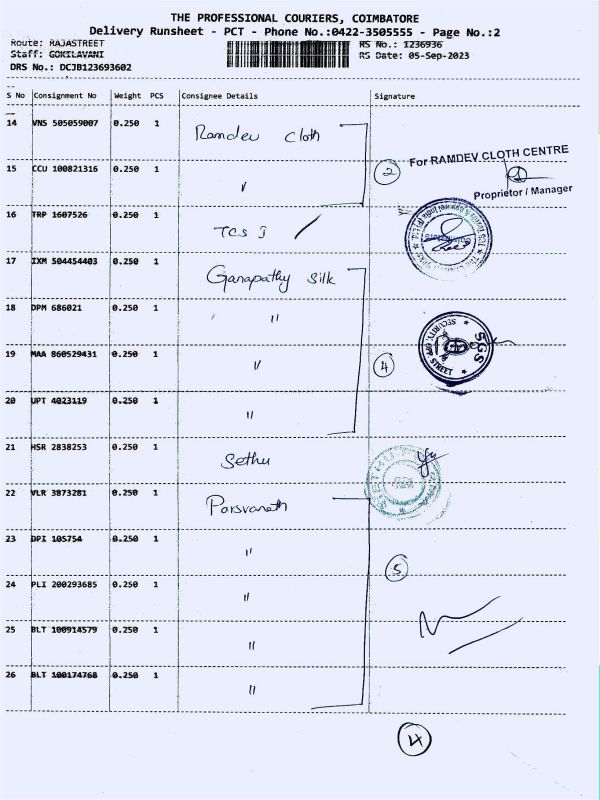 THE PROFESSIONAL COURIERS, COIMBATORE
Delivery Runsheet - PCT - Phone No.:0422-3505555 - Page No.:2
Route: RAJASTREET
RS No.: 1236936
Staff: GOKILAVANI
RS Date: 05-Sep-2023
DRS No.: DCJB123693602
S No Consignment No Weight PCS Consignee Details Signature
14 VNS 505059007 0.250 1 Ramdev Cloth
For RAMDEV CLOTH CENTRE
15 CCU 100821316 0.250 1 〃 2
Proprietor / Manager
16 TRP 1607526 0.250 1 TCS J
17 IXM 504454403 0.250 1 Ganapathy Silk
18 DPM 686021 0.250 1 〃
SGS
SECURITY, OPP
STREET
19 MAA 860529431 0.250 1 〃 4
20 UPT 4023119 0.250 1 〃
21 HSR 2838253 0.250 1 Sethu
22 VLR 3873281 0.250 1 Parsvanath
23 DPI 105754 0.250 1 〃 5
24 PLI 200293685 0.250 1 〃
25 BLT 100914579 0.250 1 〃
26 BLT 100174768 0.250 1 〃
4